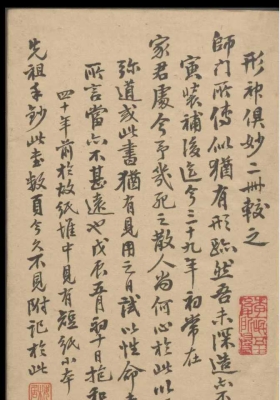 形神俱妙二冊較之
師門所傳似猶有形跡然吾未深造亦不
寅裝補後迄今三十九年初常在
家君處今予幾死之散人尚何心於此以
弥道或此書猶有見用之日試以性命
所言當亦不甚遠也戊辰五月初十日抱和
四十年前於故紙堆中見有短紙小本
先祖手鈔此書數頁今久不見附記於此